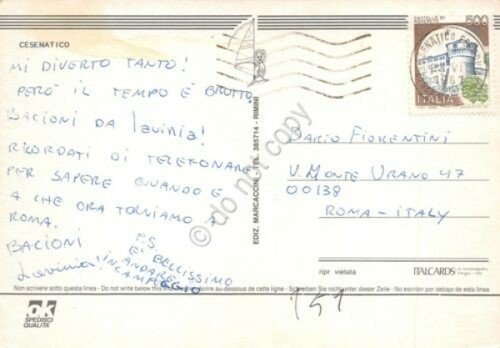 CESENATICO
MI DIVERTO TANTO!
PERÒ IL TEMPO È BRUTTO.
BACIONI DA lavinia!
RICORDATI DI TELEFONARE
PER SAPERE QUANDO E
A CHE ORA TORNIAMO A
ROMA.
BACIONI
Lavinia!
P.S
È BELLISSIMO
ANDARE
IN CAMPEGGIO
EDIZ. MARCACCINI - TEL. 385714 - RIMINI
500
ITALIA
DARIO FIORENTINI
V. MONTE URANO 47
00138
ROMA - ITALY
ripr. vietata
ITALCARDS
Non scrivere sotto questa linea - Do not write below this line - Ne pas écrire au-dessous de cette ligne - Schreiben Sie nicht unter dieser Zeile - No escribir por debajo de esta línea
OK
SPEDISCI
QUALITÀ
151
© do not copy